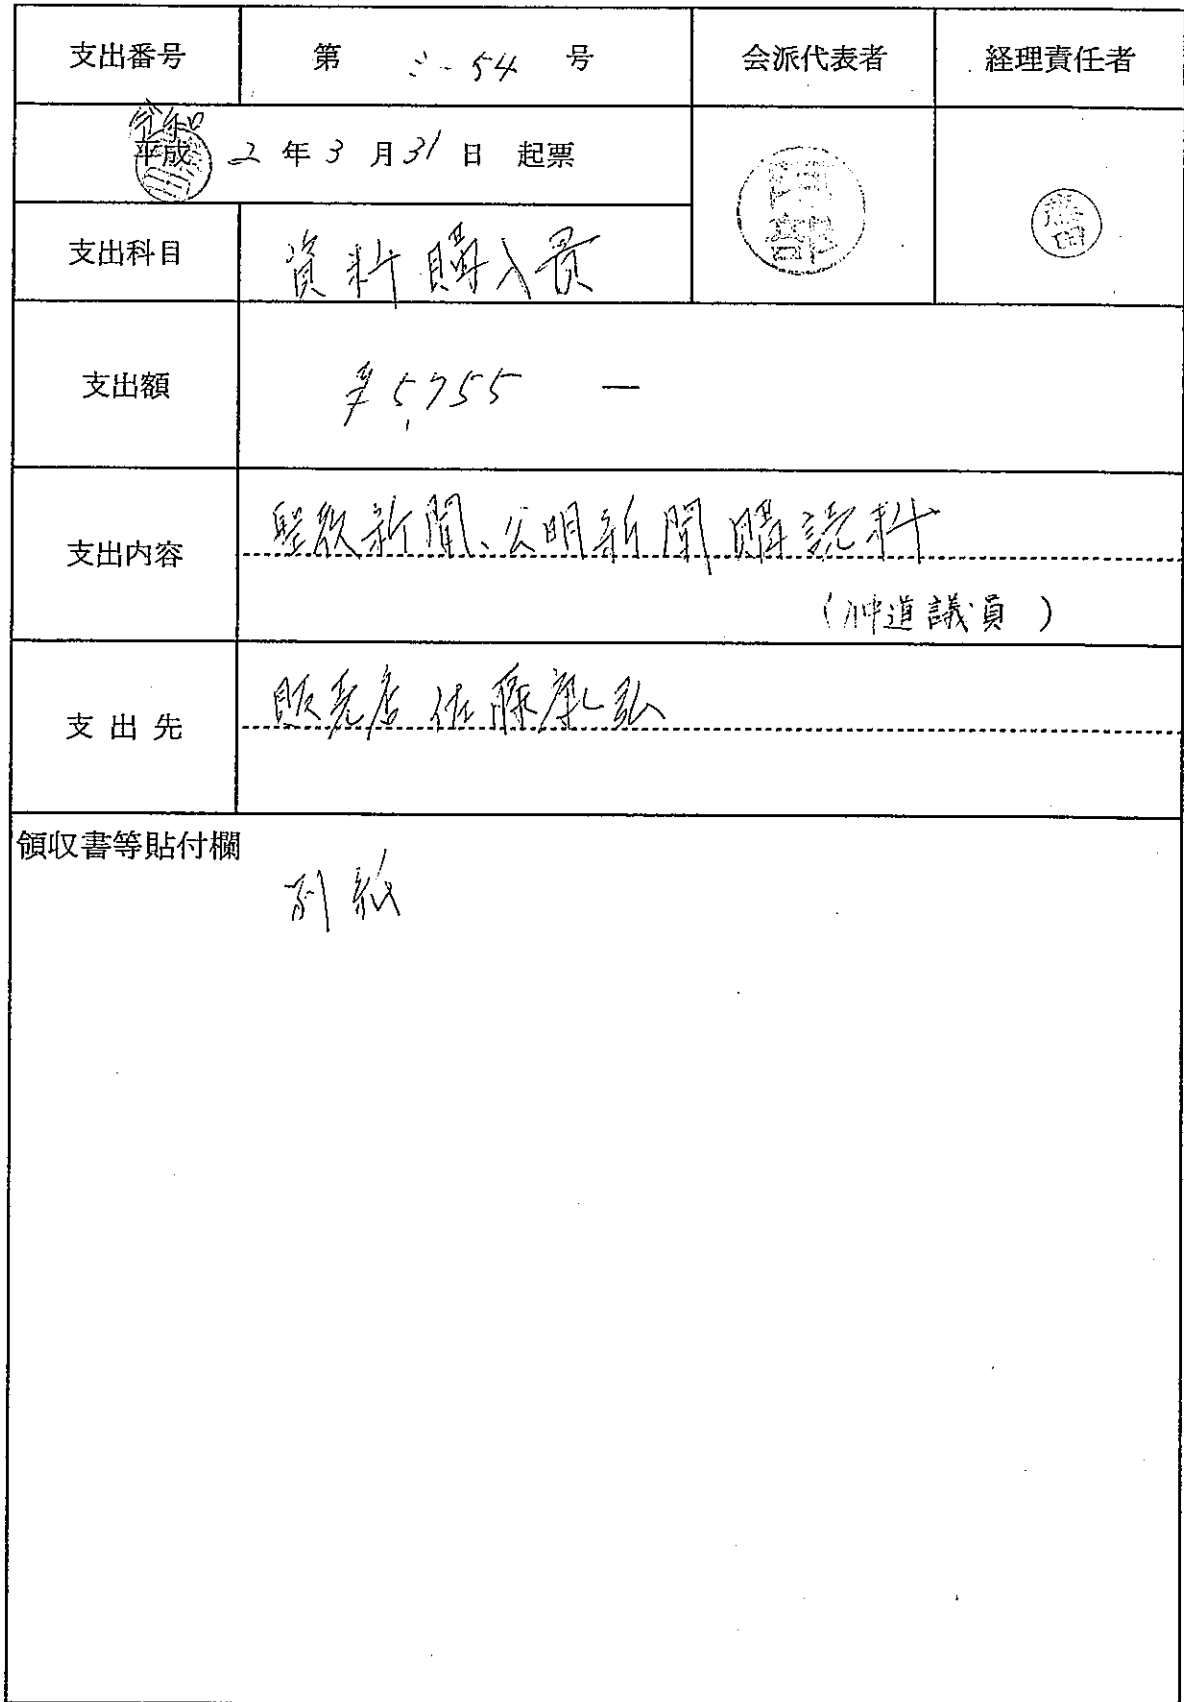 支出番号 第 ミ-54 号 会派代表者 経理責任者
令和
平成 2 年 3 月 31 日 起票
支出科目 資料購入費
支出額 ¥5,755 —
支出内容 聖教新聞、公明新聞購読料
(仲道議員)
支出先 販売店 佐藤 弘
領収書等貼付欄
別紙